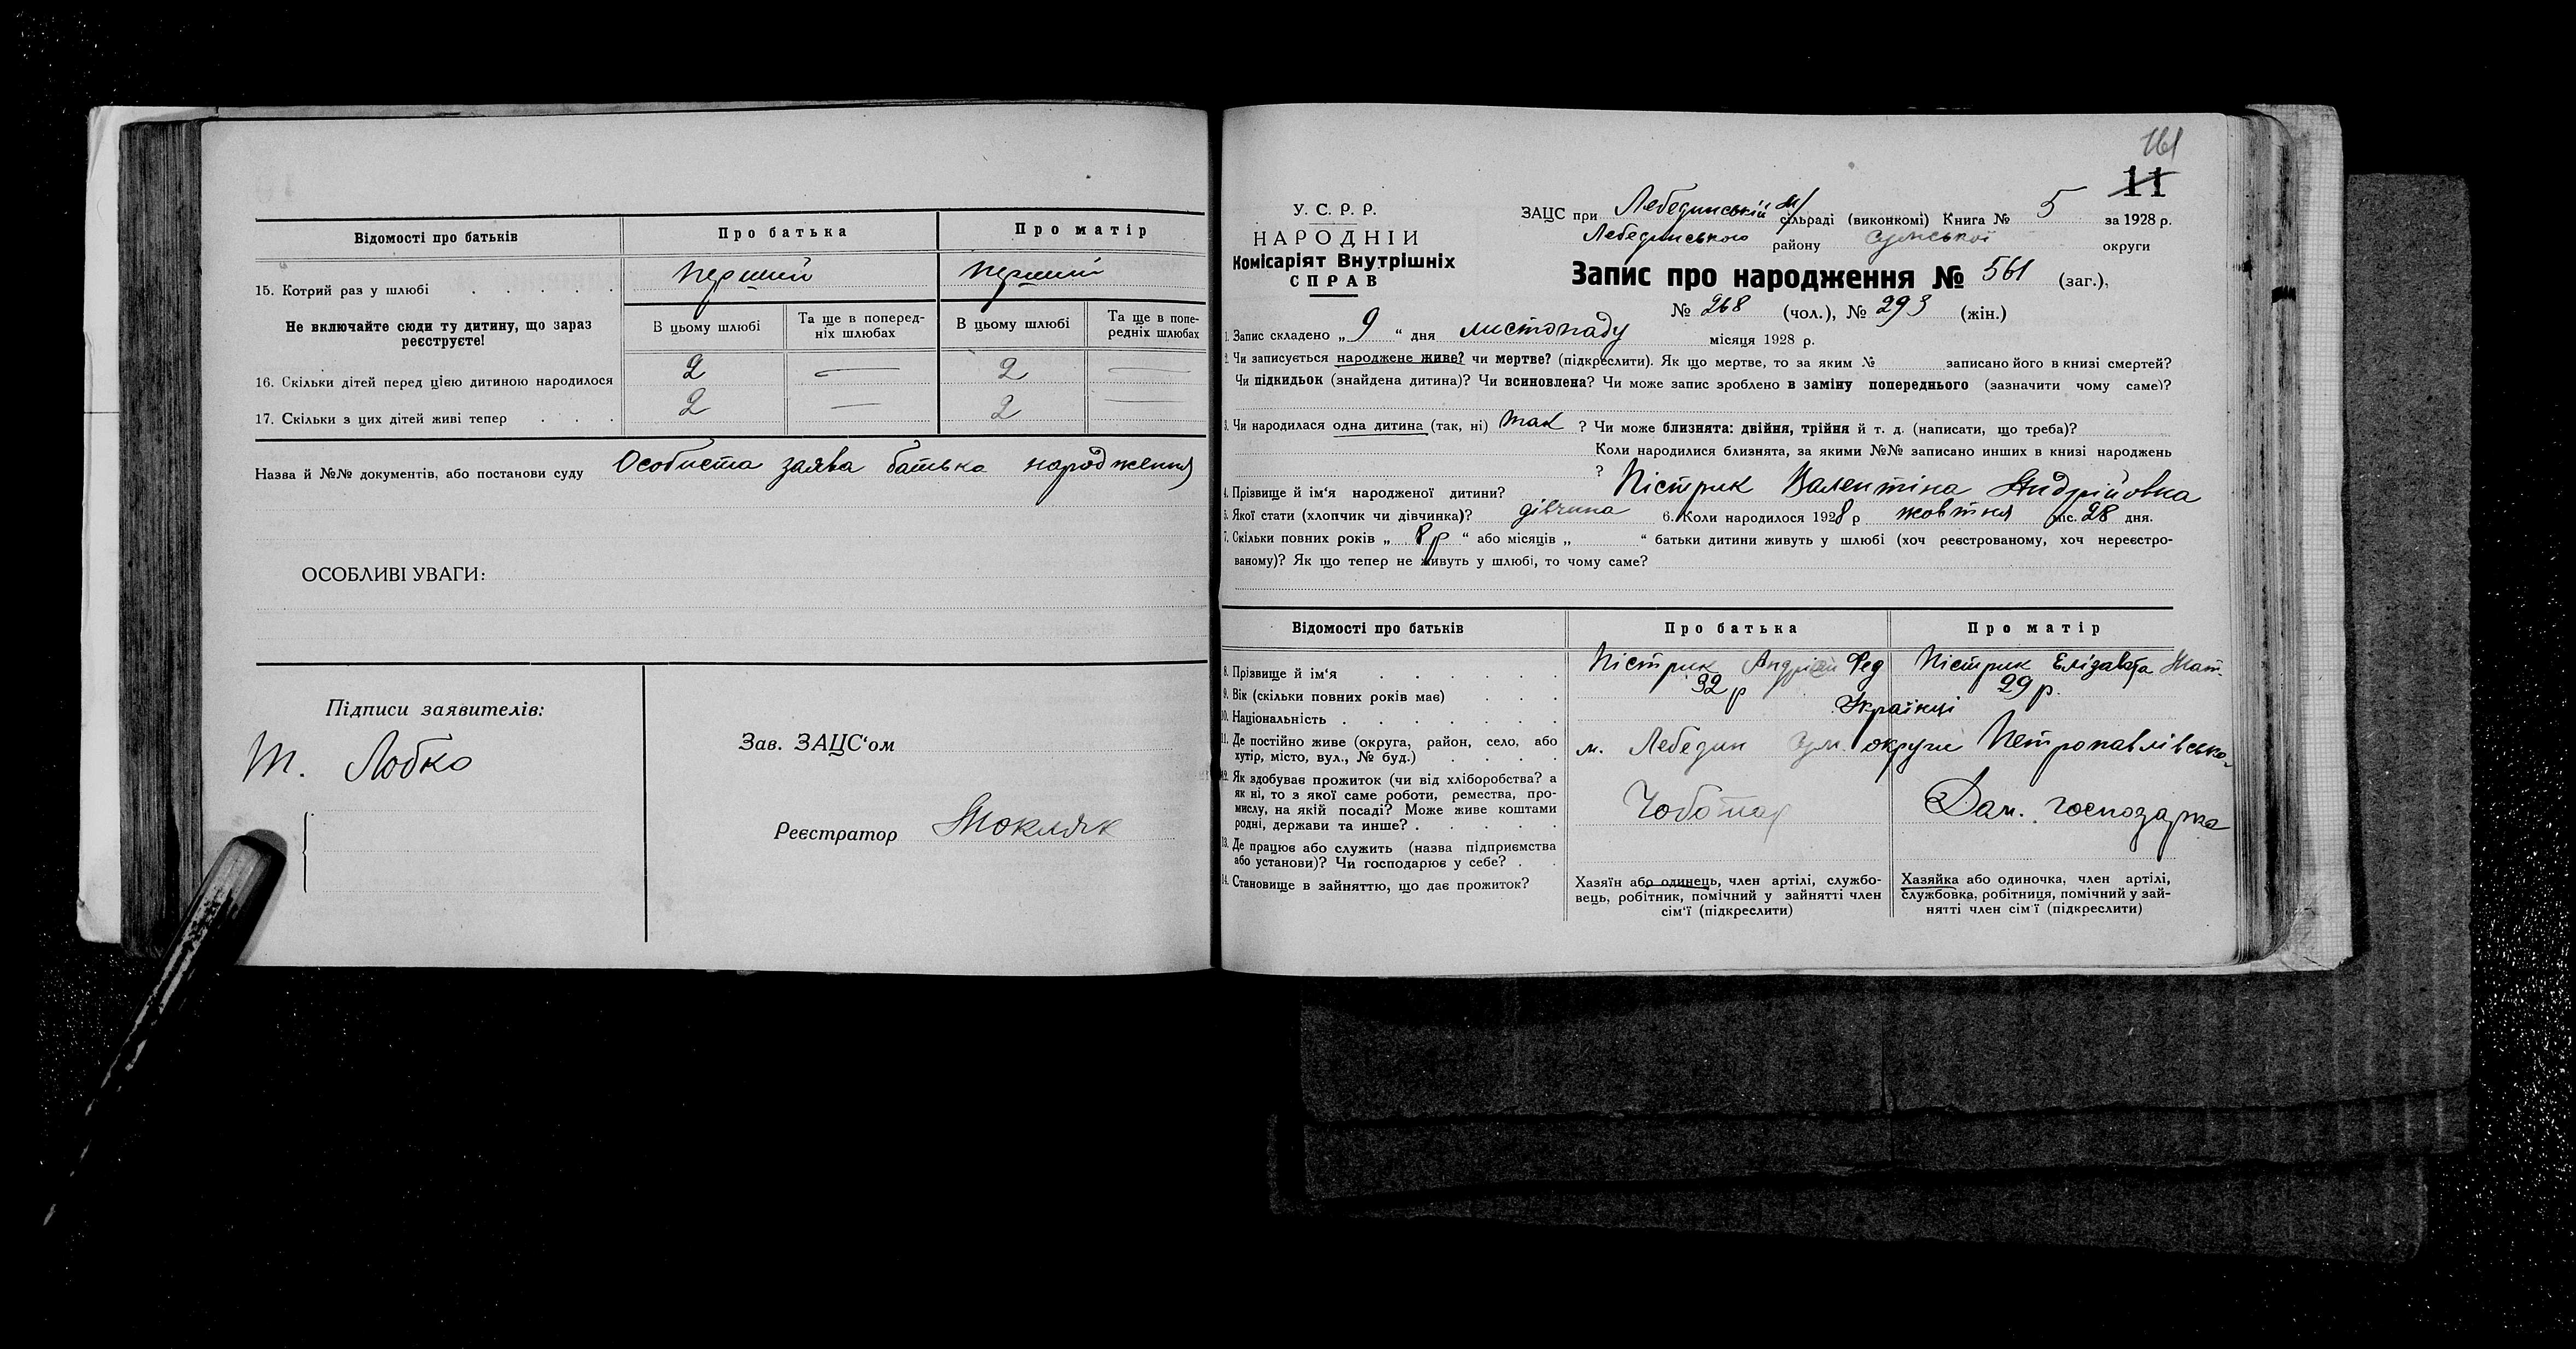 Відомості про батьків
Про батька
Про матір
15. Котрий раз у шлюбі . . . . .
перший
перший
Не включайте сюди ту дитину, що зараз
реєструєте!
В цьому шлюбі
Та ще в поперед-
ніх шлюбах
В цьому шлюбі
Та ще в попе-
редніх шлюбах
16. Скільки дітей перед цією дитиною народилося
2
—
2
—
17. Скільки з цих дітей живі тепер . . .
2
—
2
—
Назва й №№ документів, або постанови суду Особиста заява батька народження
ОСОБЛИВІ УВАГИ:
Підписи заявителів:
Зав. ЗАЦС'ом
Лобко
Реєстратор
161
11
У. С. Р. Р.
НАРОДНІЙ
Комісаріят Внутрішніх
СПРАВ
ЗАЦС при Лебединській м/ сільраді (виконкомі) Книга № 5 за 1928 р.
Лебединського району Сумської округи
Запис про народження № 561 (заг.),
№ 268 (чол.), № 293 (жін.)
1. Запис складено „ 9 " дня листопаду місяця 1928 р.
2. Чи записується народжене живе? чи мертве? (підкреслити). Як що мертве, то за яким № записано його в книзі смертей?
Чи підкидьок (знайдена дитина)? Чи всиновлена? Чи може запис зроблено в заміну попереднього (зазначити чому саме)?
3. Чи народилася одна дитина (так, ні) так ? Чи може близнята: двійня, трійня й т. д. (написати, що треба)?
Коли народилися близнята, за якими №№ записано инших в книзі народжень
?
4. Прізвище й ім'я народженої дитини? Пістрик Валентіна Андрійовна
5. Якої стати (хлопчик чи дівчинка)? дівчина 6. Коли народилося 1928 р жовтня міс. 28 дня.
7. Скільки повних років „ 8 р " або місяців „ " батьки дитини живуть у шлюбі (хоч реєстрованому, хоч нереєстро-
ваному)? Як що тепер не живуть у шлюбі, то чому саме?
Відомості про батьків
Про батька
Про матір
8. Прізвище й ім'я . . . . . .
Пістрик Андрій Фед
Пістрик Елізавета Мат.
9. Вік (скільки повних років має) . . .
32 р
29 р.
10. Національність . . . . . . .
Українці
11. Де постійно живе (округа, район, село, або
хутір, місто, вул., № буд.) . . . .
м. Лебедин Сум. округи Петропавлівська
12. Як здобуває прожиток (чи від хліборобства? а
як ні, то з якої саме роботи, ремества, про-
мислу, на якій посаді? Може живе коштами
родні, держави та инше? . . . . .
Чоботар
Дом. господарка
13. Де працює або служить (назва підприємства
або установи)? Чи господарює у себе? . .
14. Становище в зайняттю, що дає прожиток?
Хазяїн або одинець, член артілі, службо-
вець, робітник, помічний у зайнятті член
сім'ї (підкреслити)
Хазяйка або одиночка, член артілі,
службовка, робітниця, помічний у зай-
нятті член сім'ї (підкреслити)